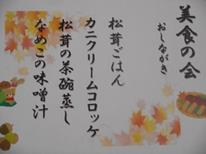 美食の会
おしながき
松茸ごはん
カニクリームコロッケ
松茸の茶碗蒸し
なめこの味噌汁